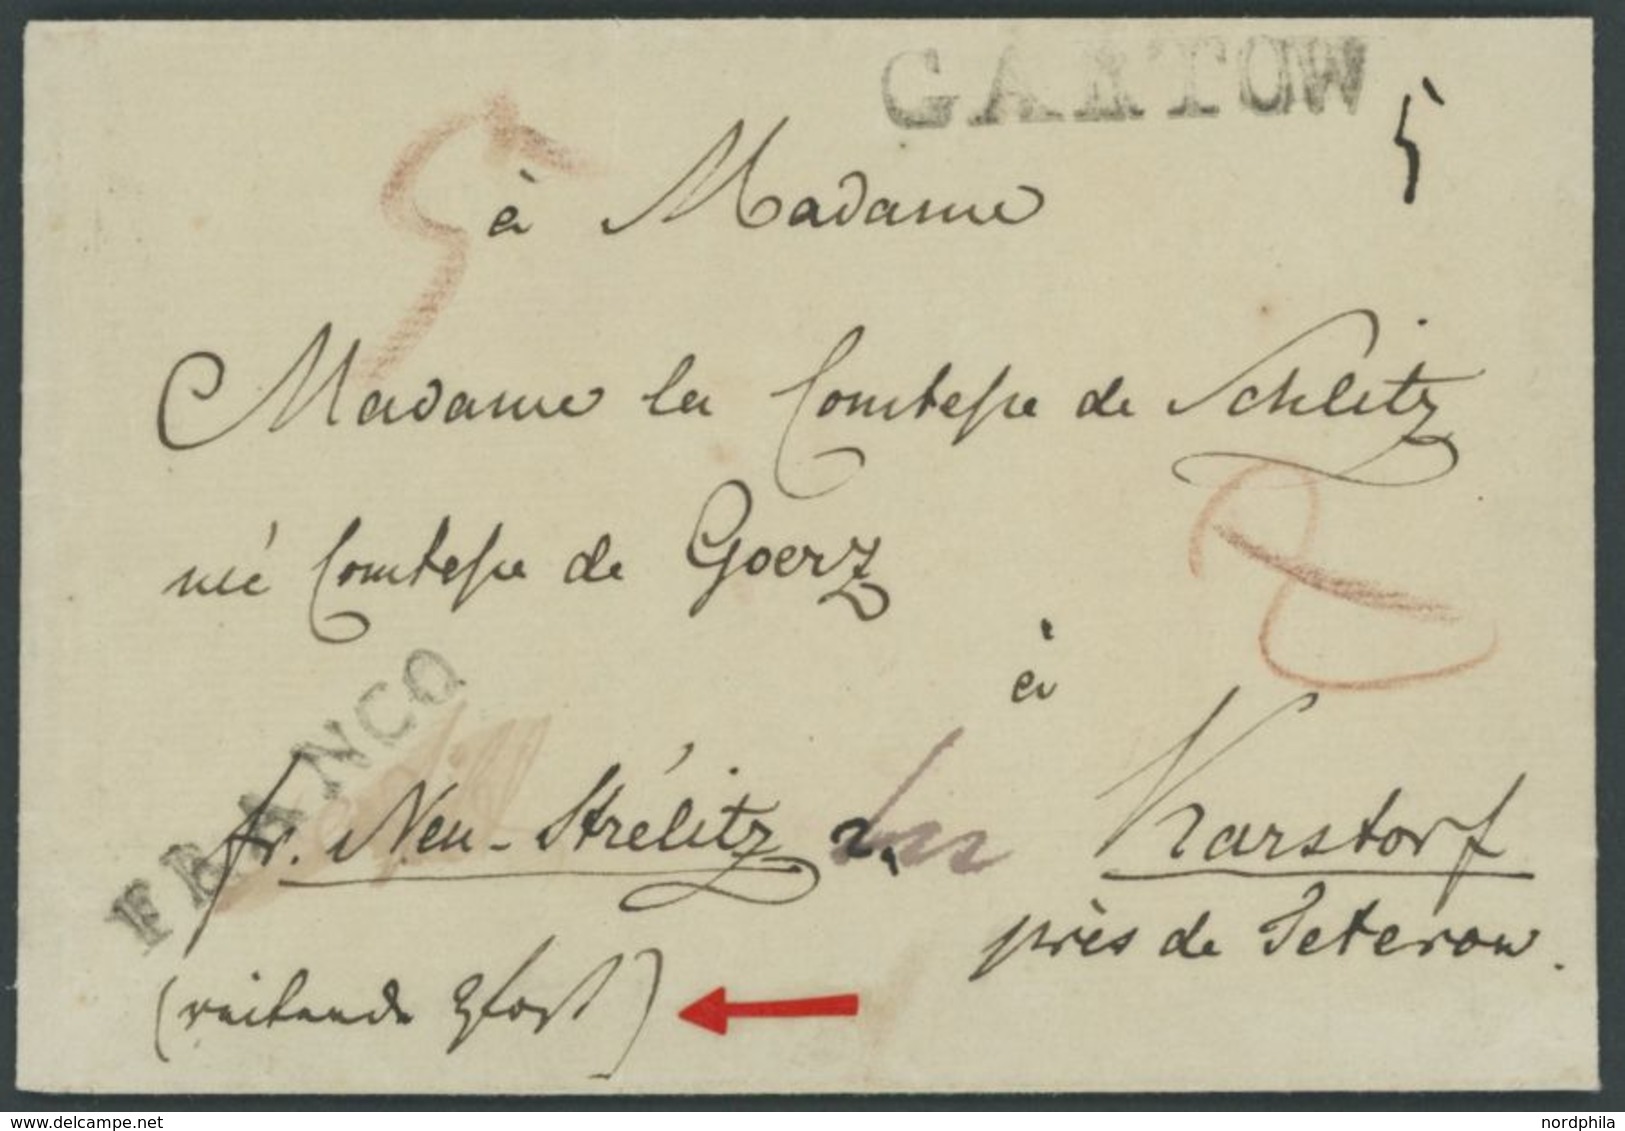 GARTOW
5
5
à Madame
Madame la Comtesse de Schlitz
né Comtesse de Goerz
à
FRANCO
fr. Neu-Strélitz
Karstorf
près de Teterow.
(reitende Post)
delcampe.net
nordphila